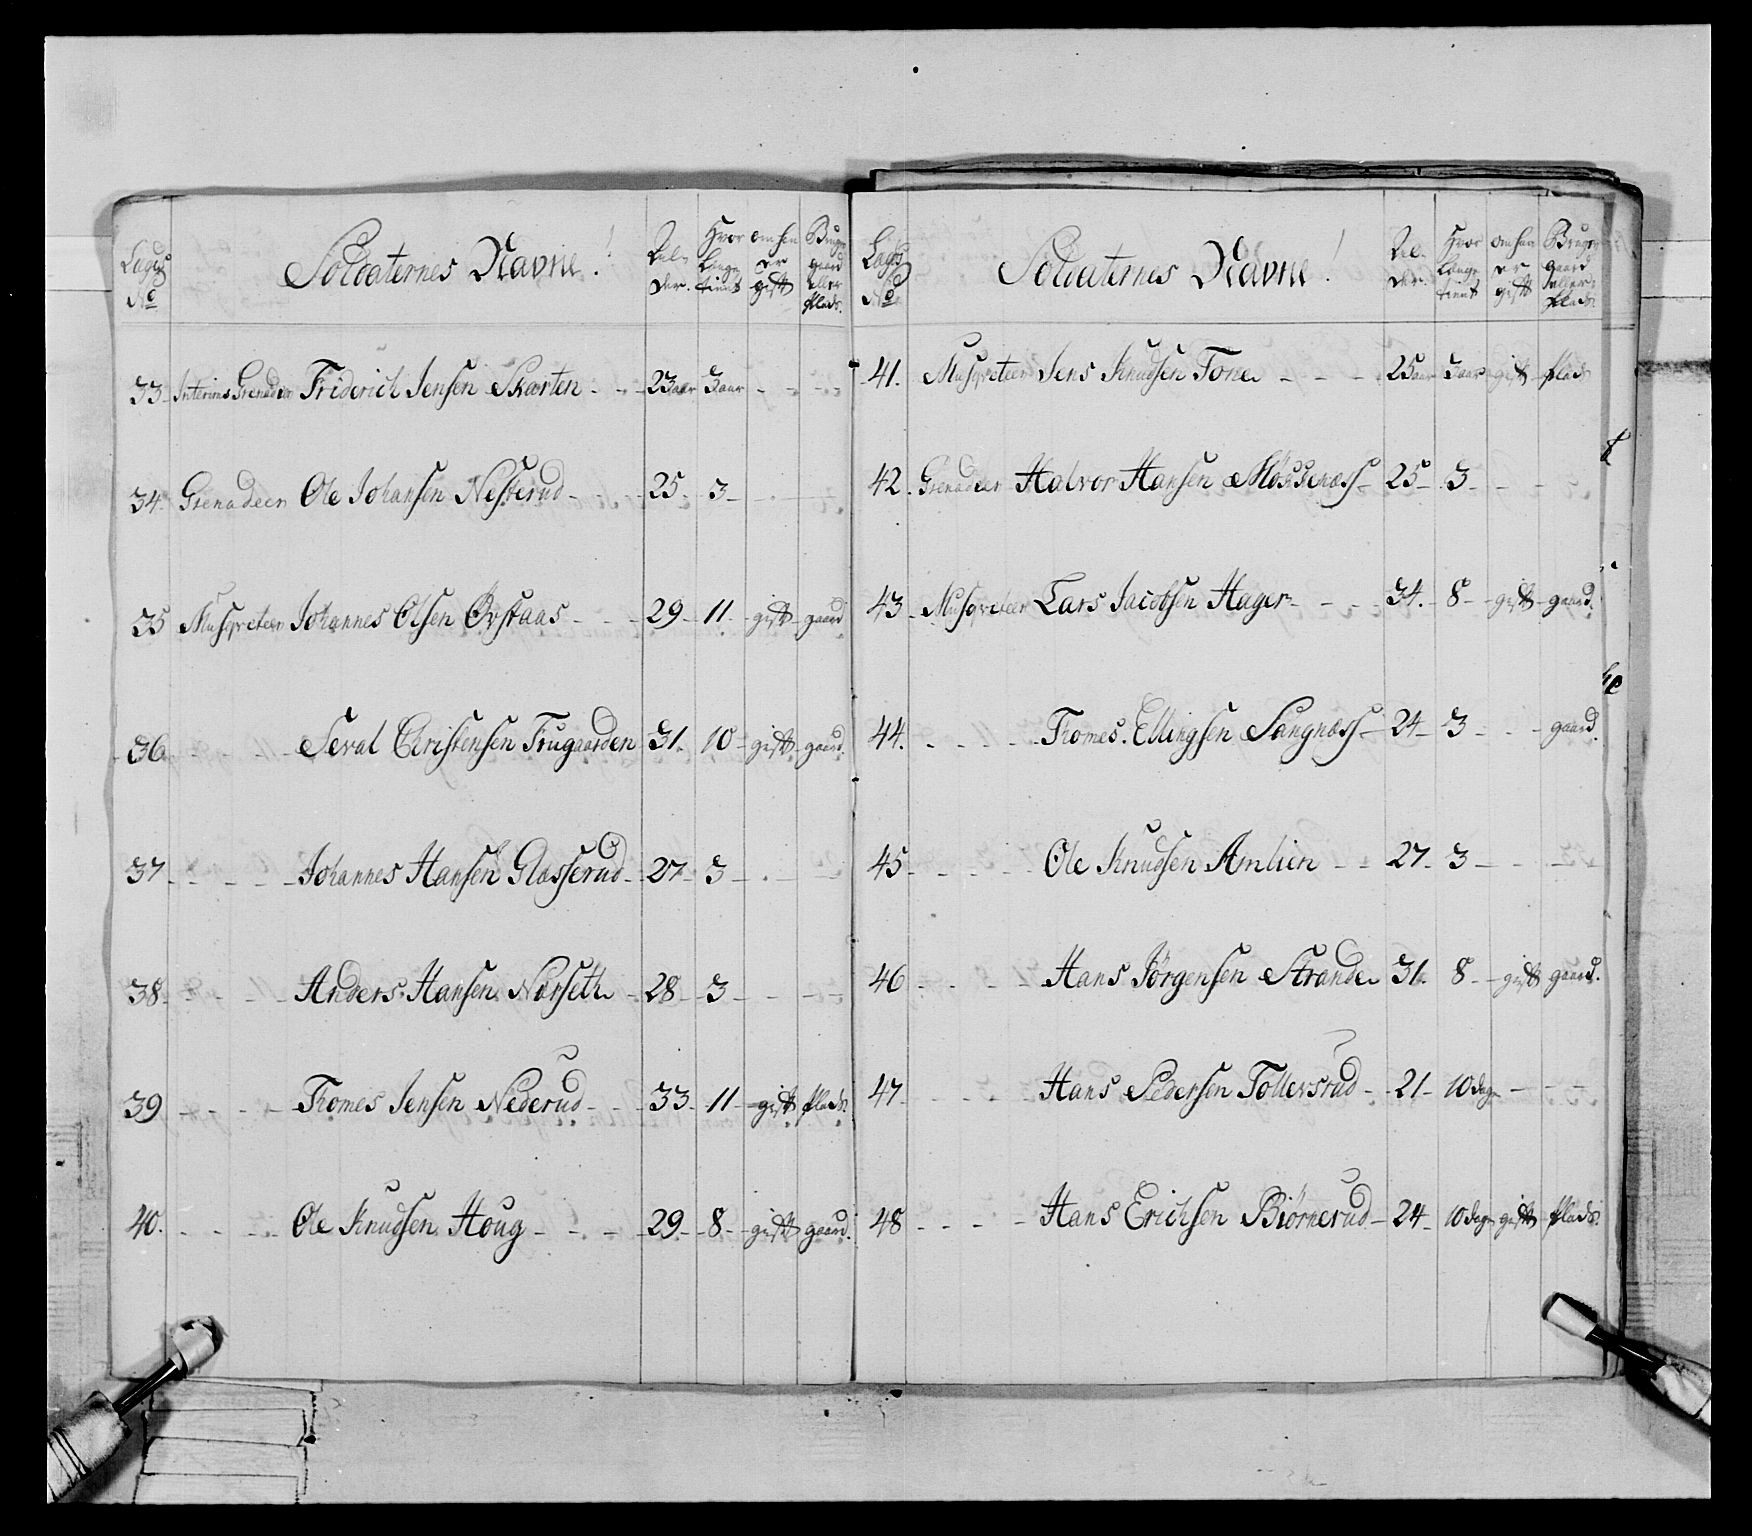 Lagds No
Soldaternes Navne!
Al- der.
Hvor Lange tient
om han er gift
Bruger gaard eller plads.
33 Interims Grenadeer Friderich Jensen Skarten 23 aar 3 aar
34 Grenadeer Ole Johansen Nesterud 25 3
35 Musqveteer Johannes Olsen Øvstaas 29 11 gift gaard
36 Seval Christensen Frugaarden 31 10 gift gaard
37 Johannes Hansen Glasserud 27 3
38 Anders Hansen Norseth 28 3
39 Thomes Jensen Nederud 33 11 gift plads
40. Ole Knudsen Houg 29 8 gift gaard
Lagds No
Soldaternes Navne!
Al- der.
Hvor Lange tient
om han er gift
Bruger gaard eller plads.
41. Musqveteer Jens Knudsen Tone 25 aar 3 aar gift plads
42. Grenadeer Halvor Hansen 25 3
43 Musqveteer Lars Jacobsen Hager 34. 8 gift gaard.
44. Thomes Ellingsen Sangnæss 24 3 gaard.
45 Ole Knudsen Amlien 27 3
46 Hans Jørgensen Strande 31. 8 gift gaard.
47 Hans Pedersen Tollersrud 21 10 dage
48 Hans Erichsen Biørnerud 24 10 dage gift plads